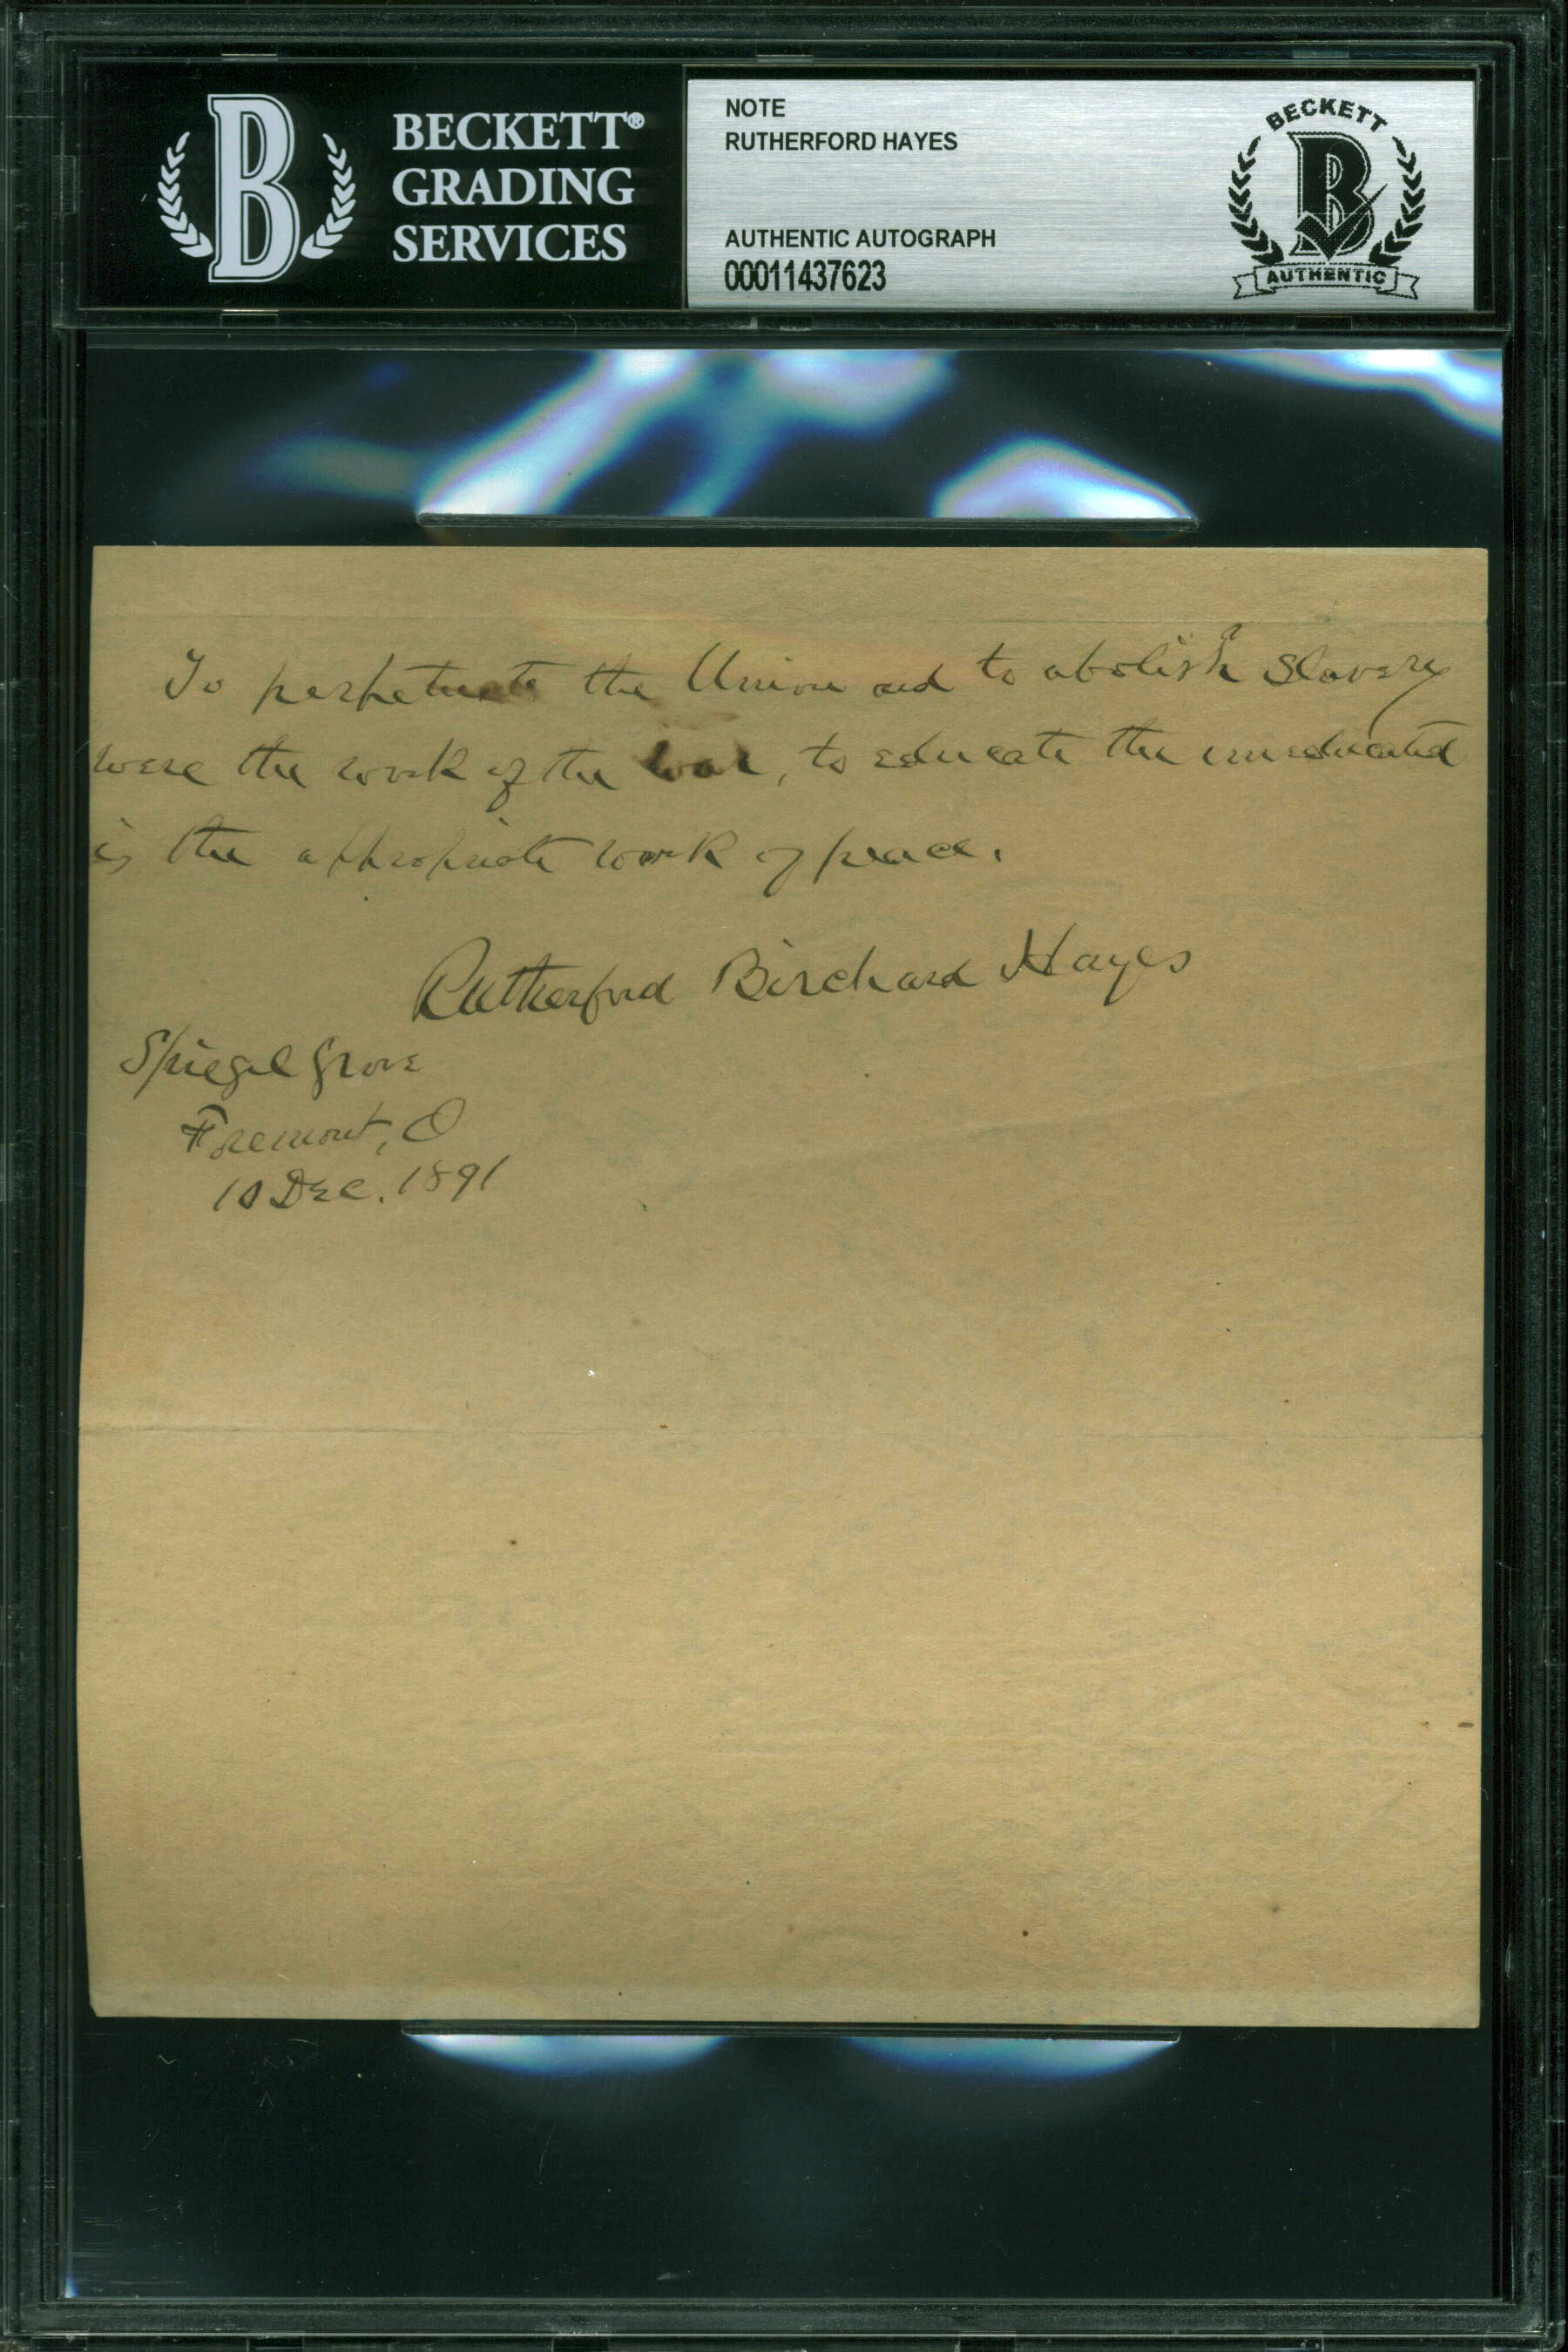 BECKETT®
GRADING
SERVICES
NOTE
RUTHERFORD HAYES
AUTHENTIC AUTOGRAPH
00011437623
BECKETT
B
AUTHENTIC
B
To perpetuate the Union and to abolish Slavery
were the work of the war, to educate the uneducated
is the appropriate work of peace.
Rutherford Birchard Hayes
Spiegel Grove
Fremont, O
10 Dec. 1891